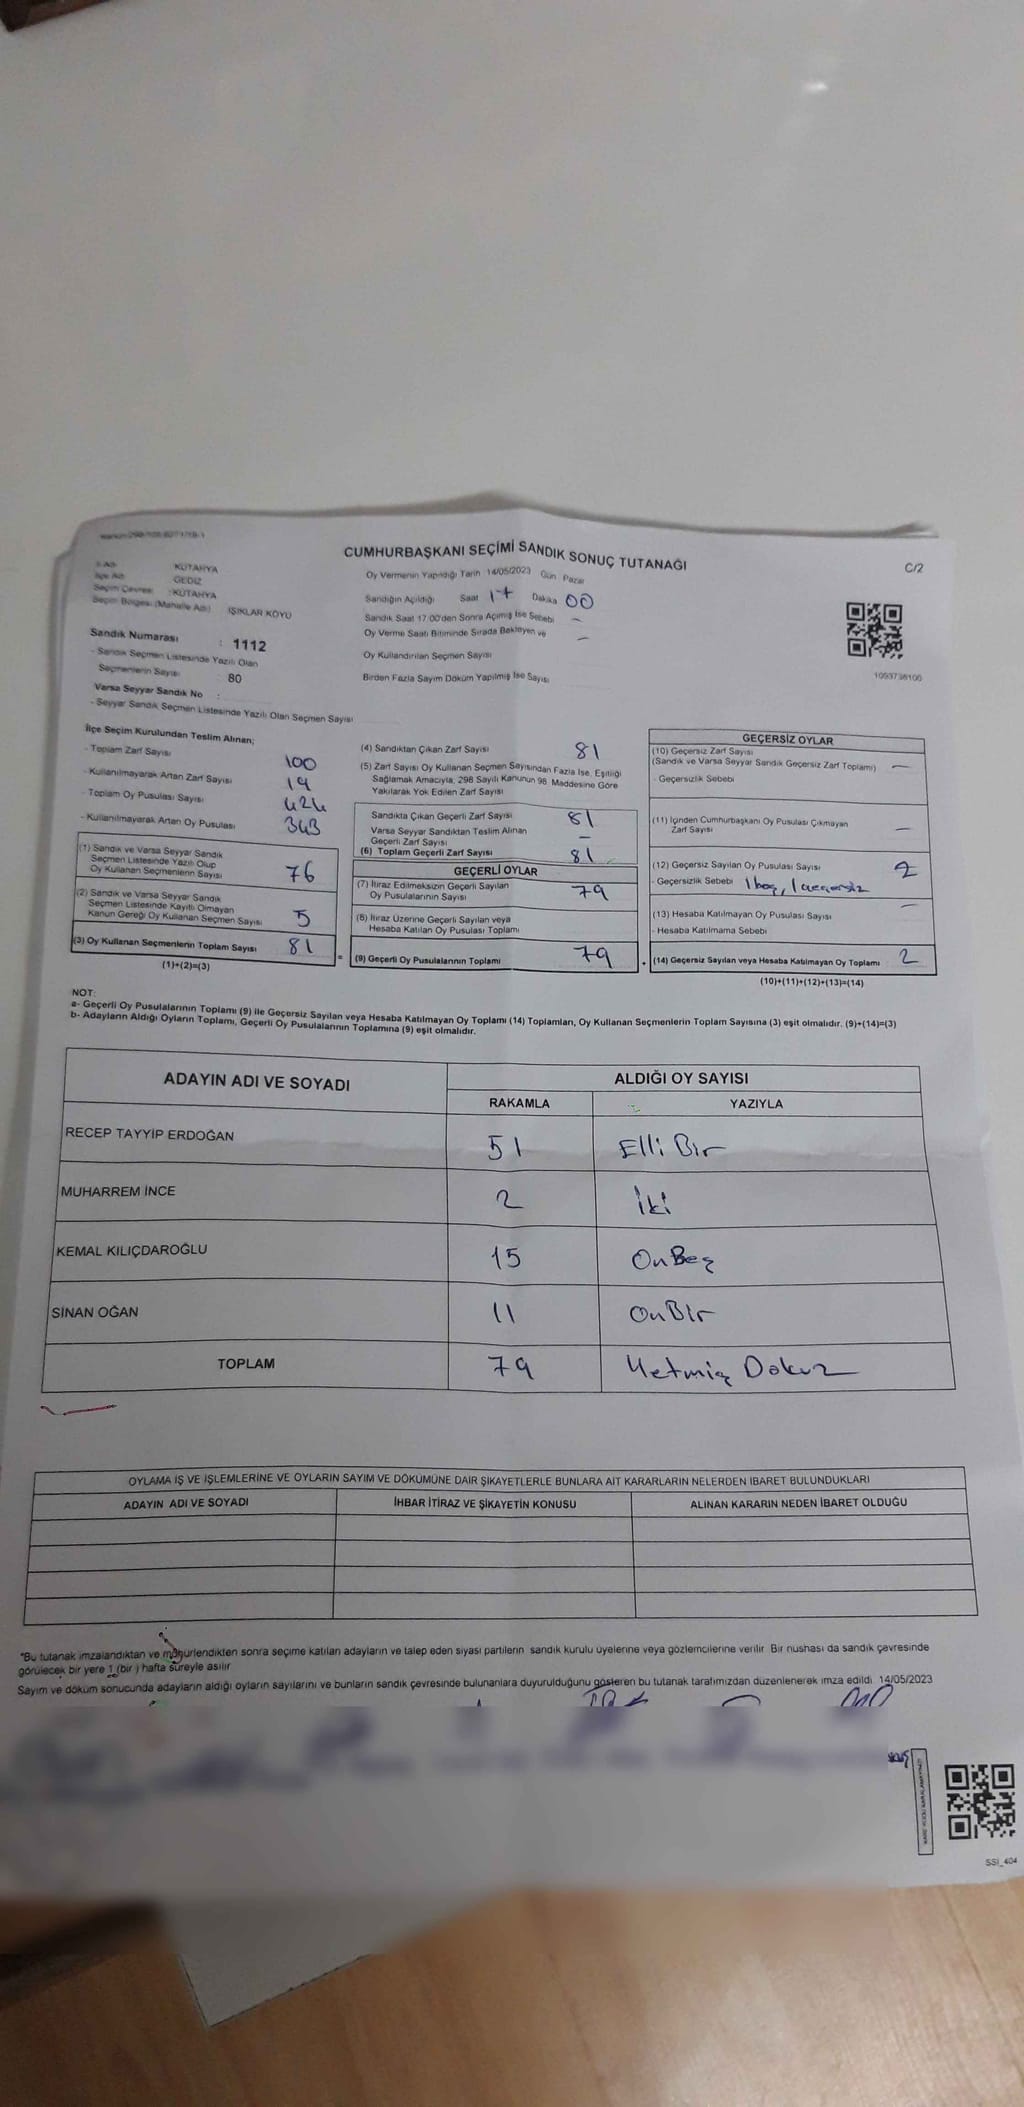 CUMHURBAŞKANI SEÇİMİ SANDIK SONUÇ TUTANAĞI
C/2
İl Adı KÜTAHYA
İlçe Adı GEDİZ
Seçim Çevresi : KÜTAHYA
Seçim Bölgesi (Mahalle Adı) IŞIKLAR KÖYÜ
Sandık Numarası : 1112
- Sandık Seçmen Listesinde Yazılı Olan
Seçmenlerin Sayısı 80
Varsa Seyyar Sandık No :
- Seyyar Sandık Seçmen Listesinde Yazılı Olan Seçmen Sayısı
Oy Vermenin Yapıldığı Tarih 14/05/2023 Gün Pazar
Sandığın Açıldığı Saat 17 Dakika 00
Sandık Saat 17:00'den Sonra Açımış İse Sebebi -
Oy Verme Saati Bitiminde Sırada Bekleyen ve -
Oy Kullandırılan Seçmen Sayısı
Birden Fazla Sayım Döküm Yapılmış İse Sayısı
1093736100
İlçe Seçim Kurulundan Teslim Alınan;
- Toplam Zarf Sayısı 100
- Kullanılmayarak Artan Zarf Sayısı 19
- Toplam Oy Pusulası Sayısı 424
- Kullanılmayarak Artan Oy Pusulası 343
(1) Sandık ve Varsa Seyyar Sandık
Seçmen Listesinde Yazılı Olup
Oy Kullanan Seçmenlerin Sayısı 76
(2) Sandık ve Varsa Seyyar Sandık
Seçmen Listesinde Kayıtlı Olmayan
Kanun Gereği Oy Kullanan Seçmen Sayısı 5
(3) Oy Kullanan Seçmenlerin Toplam Sayısı 81
(1)+(2)=(3)
(4) Sandıktan Çıkan Zarf Sayısı 81
(5) Zarf Sayısı Oy Kullanan Seçmen Sayısından Fazla İse, Eşitliği
Sağlamak Amacıyla, 298 Sayılı Kanunun 98. Maddesine Göre
Yakılarak Yok Edilen Zarf Sayısı
Sandıkta Çıkan Geçerli Zarf Sayısı 81
Varsa Seyyar Sandıktan Teslim Alınan
Geçerli Zarf Sayısı -
(6) Toplam Geçerli Zarf Sayısı 81
GEÇERLİ OYLAR
(7) İtiraz Edilmeksizin Geçerli Sayılan
Oy Pusulalarının Sayısı 79
(8) İtiraz Üzerine Geçerli Sayılan veya
Hesaba Katılan Oy Pusulası Toplamı
= (9) Geçerli Oy Pusulalarının Toplamı 79
GEÇERSİZ OYLAR
(10) Geçersiz Zarf Sayısı
(Sandık ve Varsa Seyyar Sandık Geçersiz Zarf Toplamı) -
- Geçersizlik Sebebi
(11) İçinden Cumhurbaşkanı Oy Pusulası Çıkmayan
Zarf Sayısı -
(12) Geçersiz Sayılan Oy Pusulası Sayısı 2
- Geçersizlik Sebebi 1 boş, 1 geçersiz
(13) Hesaba Katılmayan Oy Pusulası Sayısı -
- Hesaba Katılmama Sebebi
+ (14) Geçersiz Sayılan veya Hesaba Katılmayan Oy Toplamı 2
(10)+(11)+(12)+(13)=(14)
NOT:
a- Geçerli Oy Pusulalarının Toplamı (9) ile Geçersiz Sayılan veya Hesaba Katılmayan Oy Toplamı (14) Toplamları, Oy Kullanan Seçmenlerin Toplam Sayısına (3) eşit olmalıdır. (9)+(14)=(3)
b- Adayların Aldığı Oyların Toplamı, Geçerli Oy Pusulalarının Toplamına (9) eşit olmalıdır.
ADAYIN ADI VE SOYADI ALDIĞI OY SAYISI
RAKAMLA YAZIYLA
RECEP TAYYİP ERDOĞAN 51 Elli Bir
MUHARREM İNCE 2 İki
KEMAL KILIÇDAROĞLU 15 OnBeş
SİNAN OĞAN 11 OnBir
TOPLAM 79 Yetmiş Dokuz
OYLAMA İŞ VE İŞLEMLERİNE VE OYLARIN SAYIM VE DÖKÜMÜNE DAİR ŞİKAYETLERLE BUNLARA AİT KARARLARIN NELERDEN İBARET BULUNDUKLARI
ADAYIN ADI VE SOYADI İHBAR İTİRAZ VE ŞİKAYETİN KONUSU ALINAN KARARIN NEDEN İBARET OLDUĞU
*Bu tutanak imzalandıktan ve mühürlendikten sonra seçime katılan adayların ve talep eden siyasi partilerin sandık kurulu üyelerine veya gözlemcilerine verilir. Bir nüshası da sandık çevresinde
görülecek bir yere 1 (bir ) hafta süreyle asılır
Sayım ve döküm sonucunda adayların aldığı oyların sayılarını ve bunların sandık çevresinde bulunanlara duyurulduğunu gösteren bu tutanak tarafımızdan düzenlenerek imza edildi 14/05/2023
SSI_404